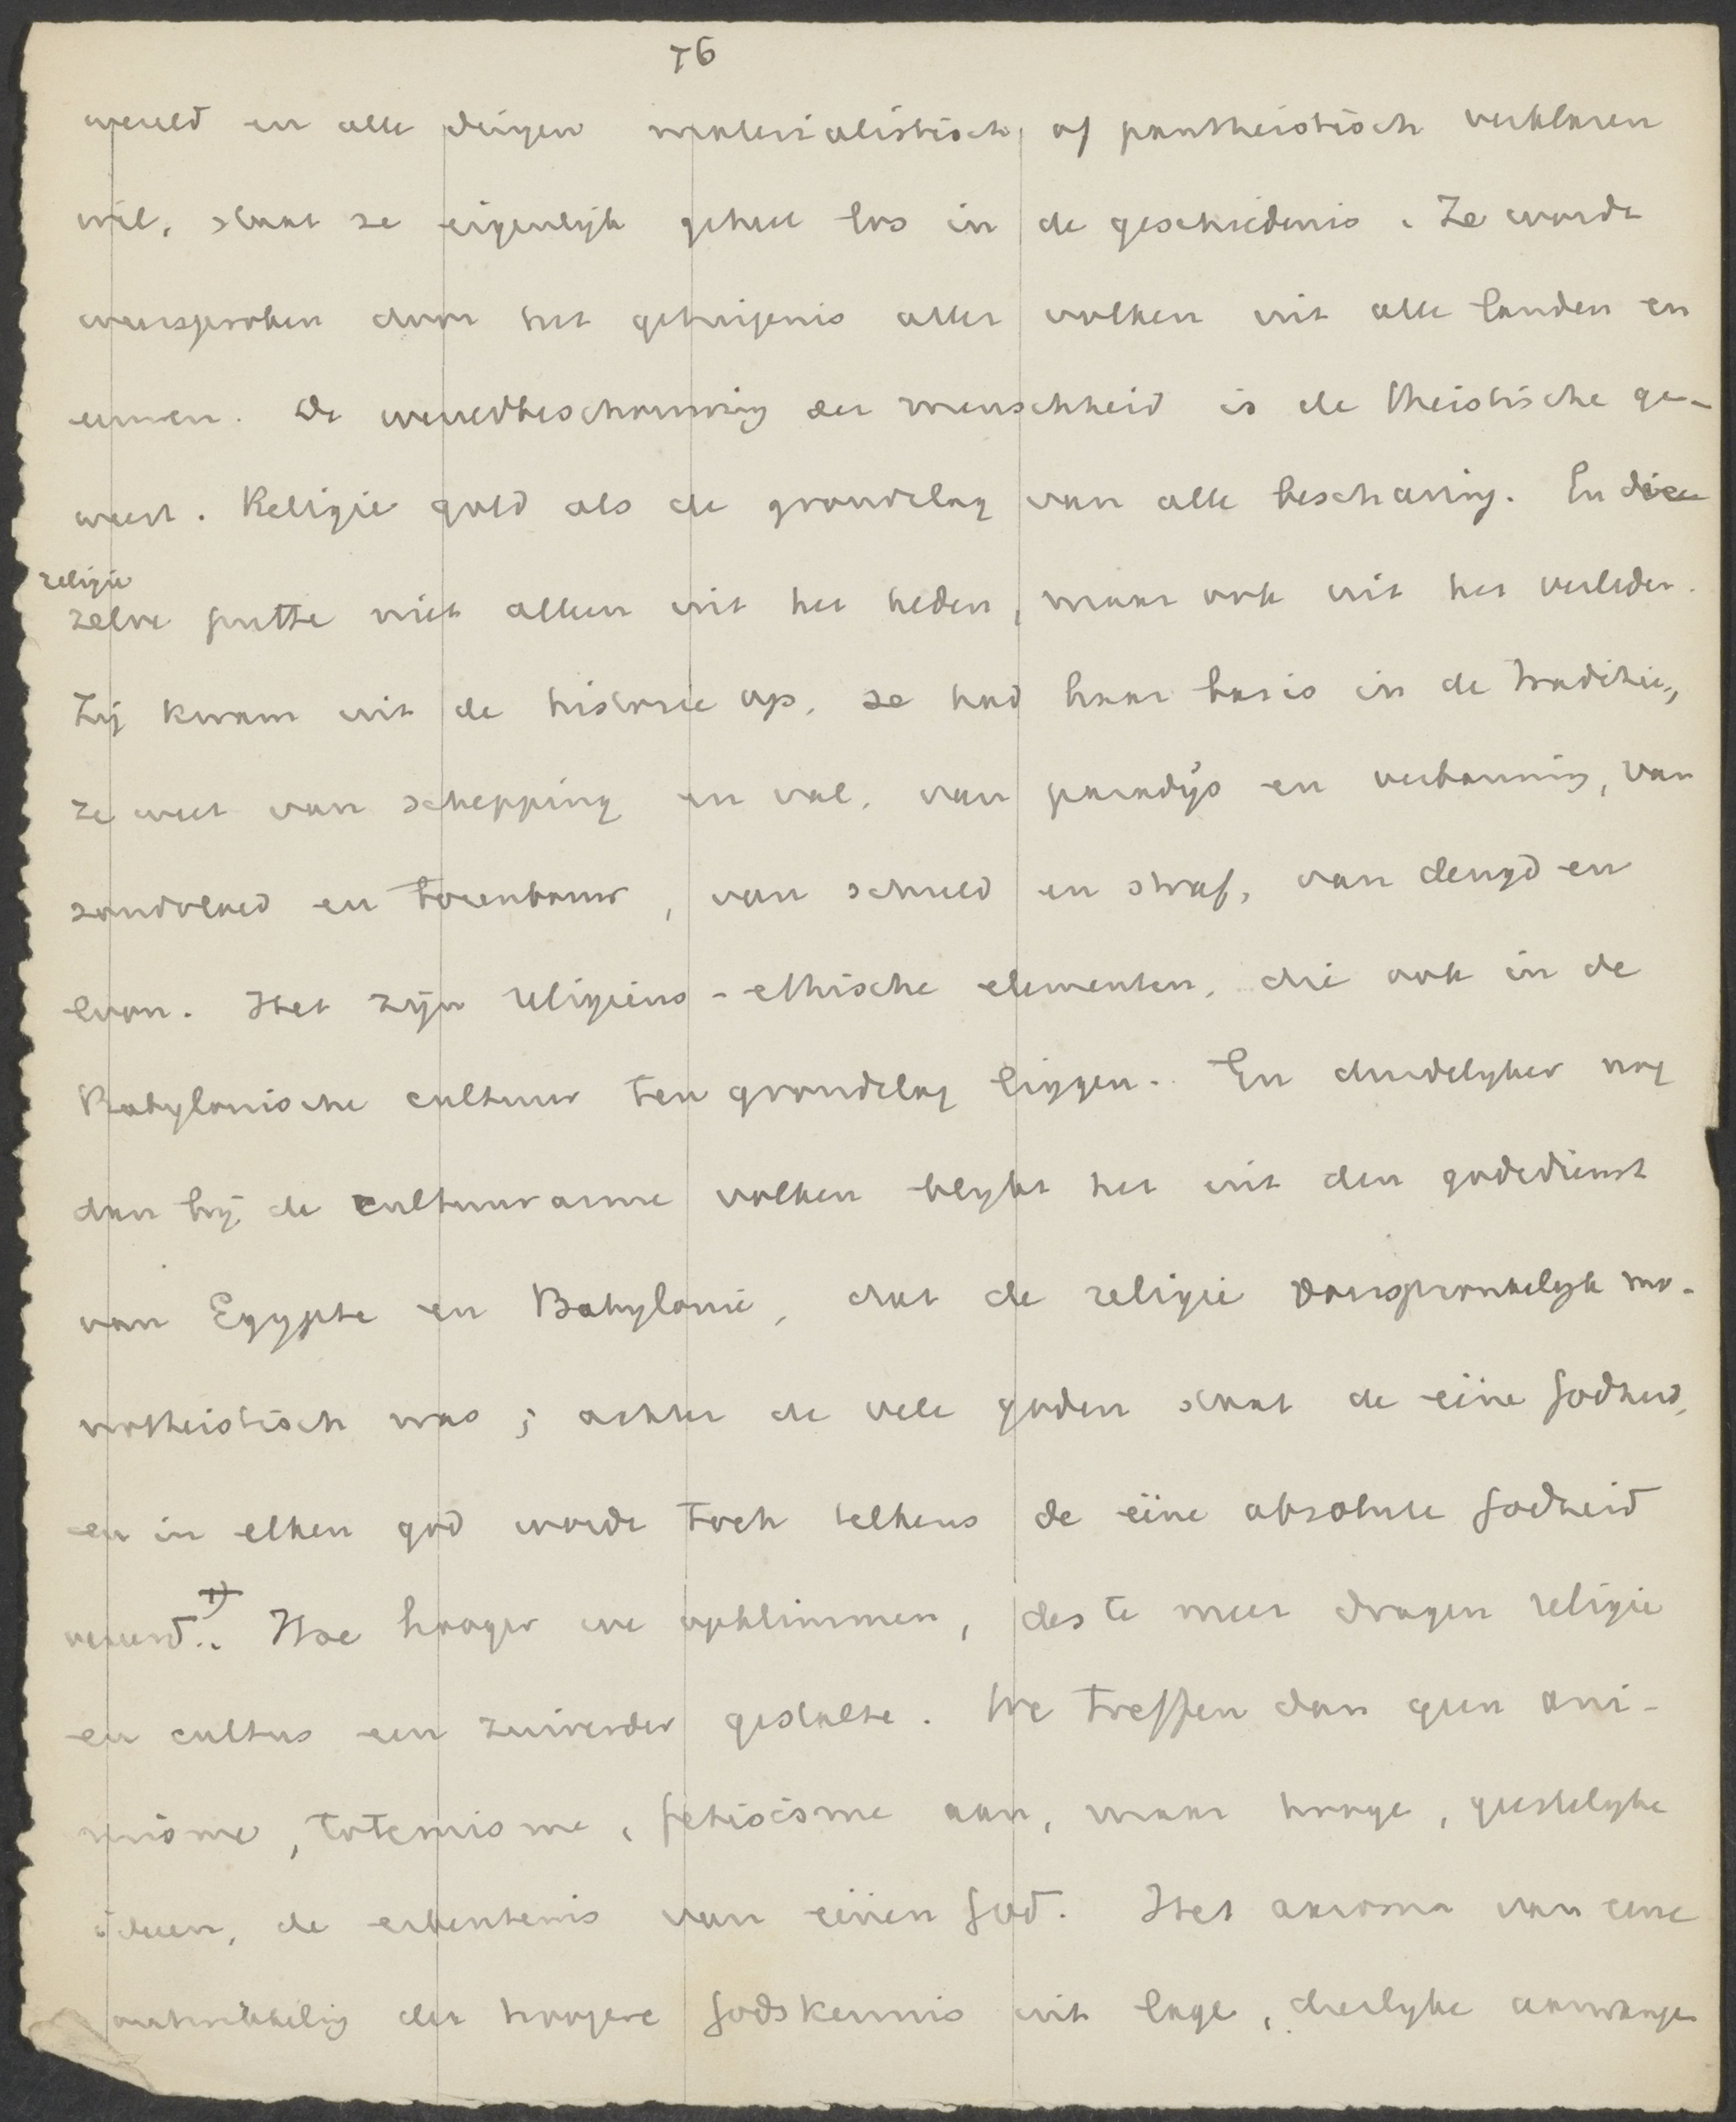 76
wereld en alle dingen materialistisch, of pantheistisch verklaren
wil, staat ze eigenlijk geheel los in de geschiedenis. Ze wordt
weersproken door het getuigenis aller volken uit alle landen en
eeuwen. De wereldbeschouwing der menschheid is de theistische ge-
weest. Religie gold als de grondslag van alle beschaving. En deze
religie
zelve putte niet alleen uit het heden, maar ook uit het verleden.
Zij kwam uit de historie op, ze had haar basis in de traditie,
ze weet van schepping en val, van paradijs en verbanning, van
zondvloed en torenbouw, van schuld en straf, van deugd en
loon. Het zijn religieus-ethische elementen, die ook in de
Babylonische cultuur ten grondslag liggen. En duidelyker nog
dan bij de cultuurarme volken blykt het uit den godedienst
van Egypte en Babylonie, dat de religie oorspronkelyk mo-
notheistisch was; achter de vele goden staat de eéne Godheid,
en in elken god wordt toch telkens de eéne absolute Godheid
vereerd. 1) Hoe hooger we opklimmen, des te meer dragen religie
en cultus een zuiverder gestalte. We treffen dan geen ani-
misme, totemisme, fetisisme aan, maar hooge, geestelyke
ideeen, de erkentenis van eénen God. Het axioma van eene
ontwikkeling der hoogere Godskennis uit lage, dierlyke aanvangen